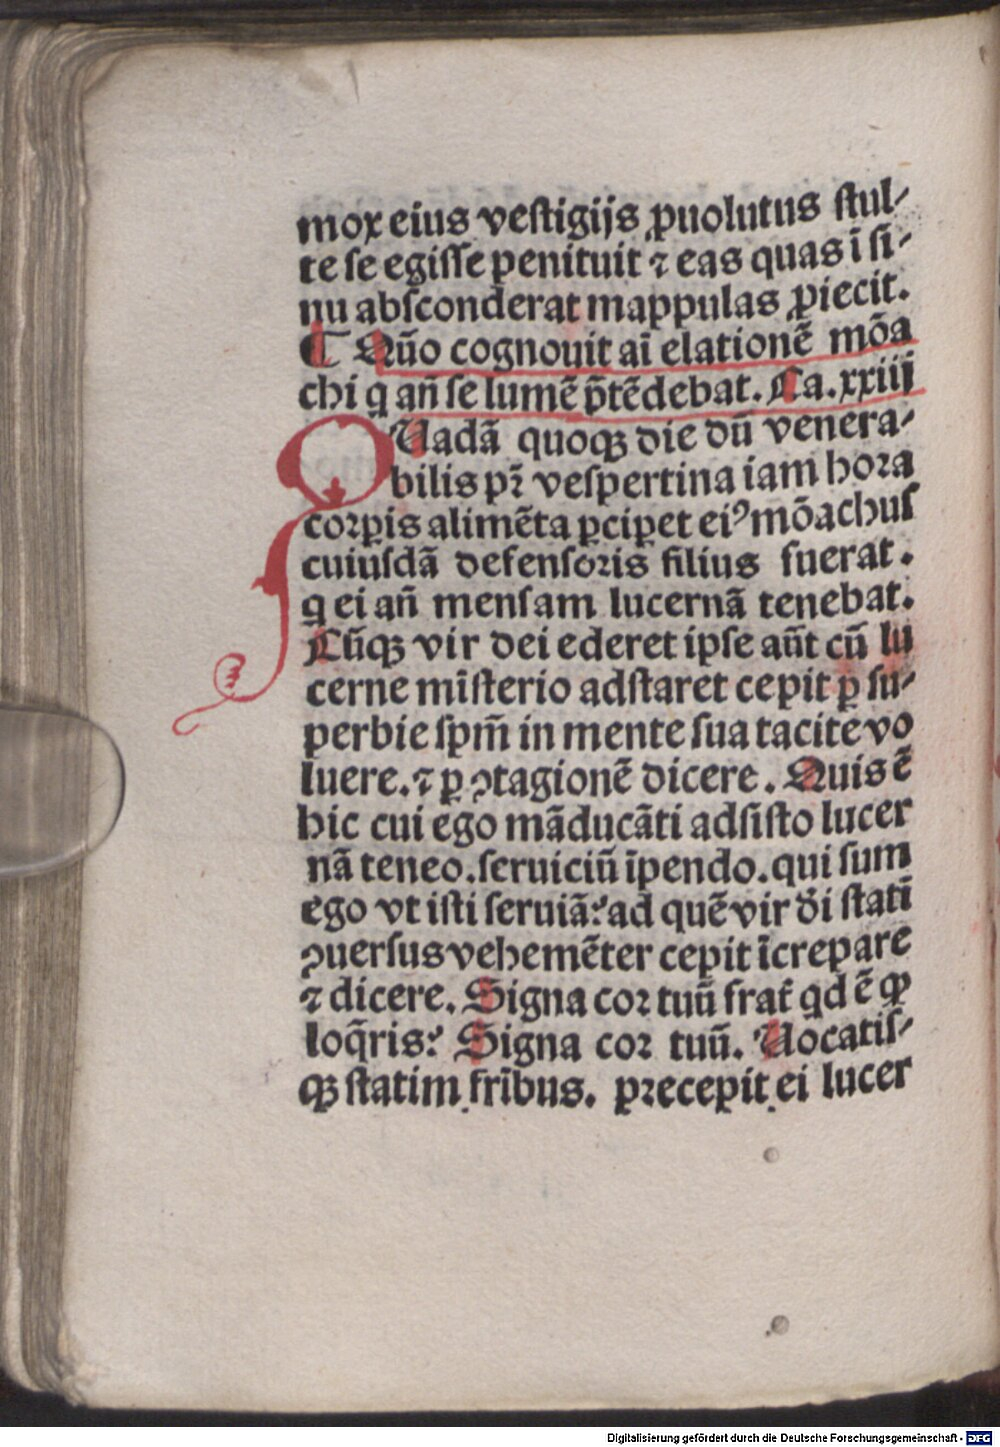 mox eius vestigijs ꝓuolutus stul⸗
te se egisse penituit ⁊ eas quas ī si⸗
nu absconderat mappulas ꝓiecit.
¶ Quō cognouit aī elationē mōa
chi q an̄ se lumē p̄tēdebat. Ca. xxiiij
QUadā quoqꝫ die dū venera⸗
bilis pr̄ vespertina iam hora
corꝑis alimēta ꝑciꝑet eiꝰ mōachus
cuiusdā defensoris filius fuerat.
q ei an̄ mensam lucernā tenebat.
Cūqꝫ vir dei ederet ipse aūt cū lu
cerne mīsterio adstaret cepit ꝑ su⸗
perbie spm̄ in mente sua tacite vo
luere. ⁊ ꝑ ꝯtagionē dicere. Quis ē
hic cui ego māducāti adsisto lucer
nā teneo. seruiciū īpendo. qui sum
ego vt isti seruiā? ad quē vir dī stati
ꝯuersus vehemēter cepit īcrepare
⁊ dicere. Signa cor tuū frat̄ qd ē qꝫ
loq̄ris? Signa cor tuū. Uocatis⸗
qꝫ statim fr̄ibus. precepit ei lucer
Digitalisierung gefördert durch die Deutsche Forschungsgemeinschaft - DFG